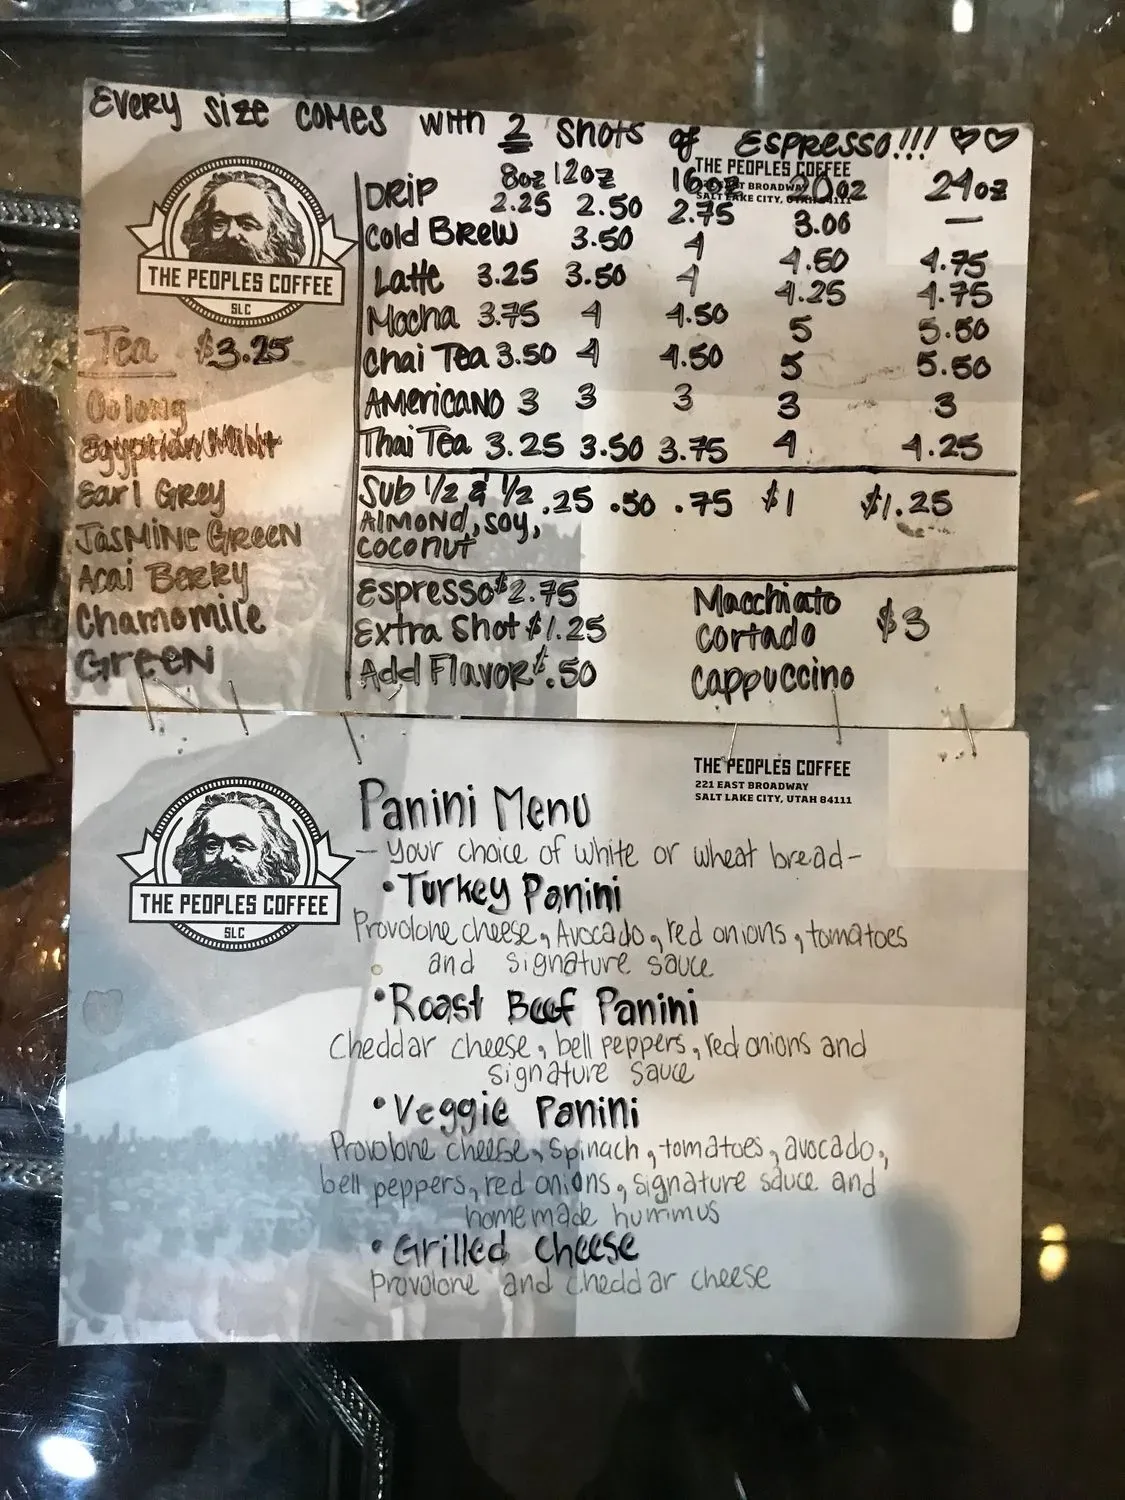 Every size comes with 2 shots of Espresso!!! ♡♡
THE PEOPLES COFFEE
BROADWAY
SALT LAKE CITY, UTAH 84111
8oz 12oz 16oz 20oz 24oz
Drip 2.25 2.50 2.75 3.00 —
Cold Brew 3.50 4 4.50 4.75
Latte 3.25 3.50 4 4.25 4.75
Mocha 3.75 4 4.50 5 5.50
Chai Tea 3.50 4 4.50 5 5.50
Americano 3 3 3 3 3
Thai Tea 3.25 3.50 3.75 4 4.25
Sub 1/2 & 1/2 .25 .50 .75 $1 $1.25
Almond, soy,
coconut
Espresso $2.75
Extra Shot $1.25
Add Flavor $.50
Macchiato
Cortado $3
Cappuccino
THE PEOPLES COFFEE
SLC
Tea $3.25
Oolong
Egyptian Mint
Earl Grey
Jasmine Green
Acai Berry
Chamomile
Green
THE PEOPLES COFFEE
221 EAST BROADWAY
SALT LAKE CITY, UTAH 84111
THE PEOPLES COFFEE
SLC
Panini Menu
- Your choice of white or wheat bread -
• Turkey Panini
Provolone cheese, Avocado, red onions, tomatoes
and signature sauce
• Roast Beef Panini
Cheddar cheese, bell peppers, red onions and
signature sauce
• Veggie Panini
Provolone cheese, spinach, tomatoes, avocado,
bell peppers, red onions, signature sauce and
homemade hummus
• Grilled cheese
Provolone and cheddar cheese